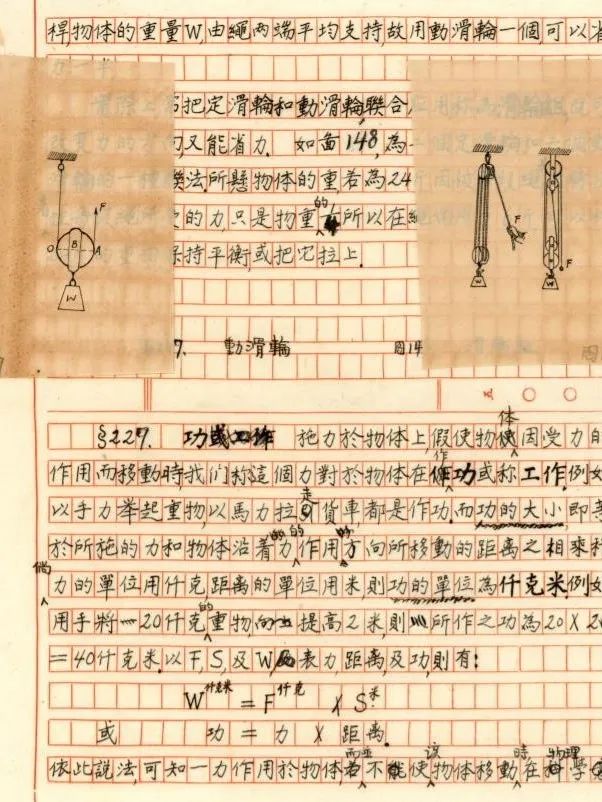 桿,物体的重量W,由繩兩端平均支持,故用動滑輪一個,可以省
力一半.
把定滑輪和動滑輪聯合
又能省力. 如畨148,為
法所懸物体的重若為24
的力只是物重的 所以在
持平衡,或把它拉上.
F
O B A
W
F
W
F
W
7. 動滑輪
图14
五 〇 〇
§227. 功或工作 施力於物体上,假使物体因受力的
作用而移動時,我们称這個力對於物体在作功或称工作.例如
以手力举起重物,以馬力拉走貨車都是作功.而功的大小即等
於所施的力和物体沿着力的作用的方向所移動的距离之相乘積
力的單位用仟克,距离的單位用米,則功的單位為仟克米.例如
用手將20仟克的重物,向上提高2米,則所作之功為20×2
=40仟克米.以F,S,及W,表力距离及功,則有:
W仟克米 = F仟克 × S米.
或 功 = 力 × 距离.
依此說法,可知一力作用於物体,而並不能使该物体移動時,在物理學